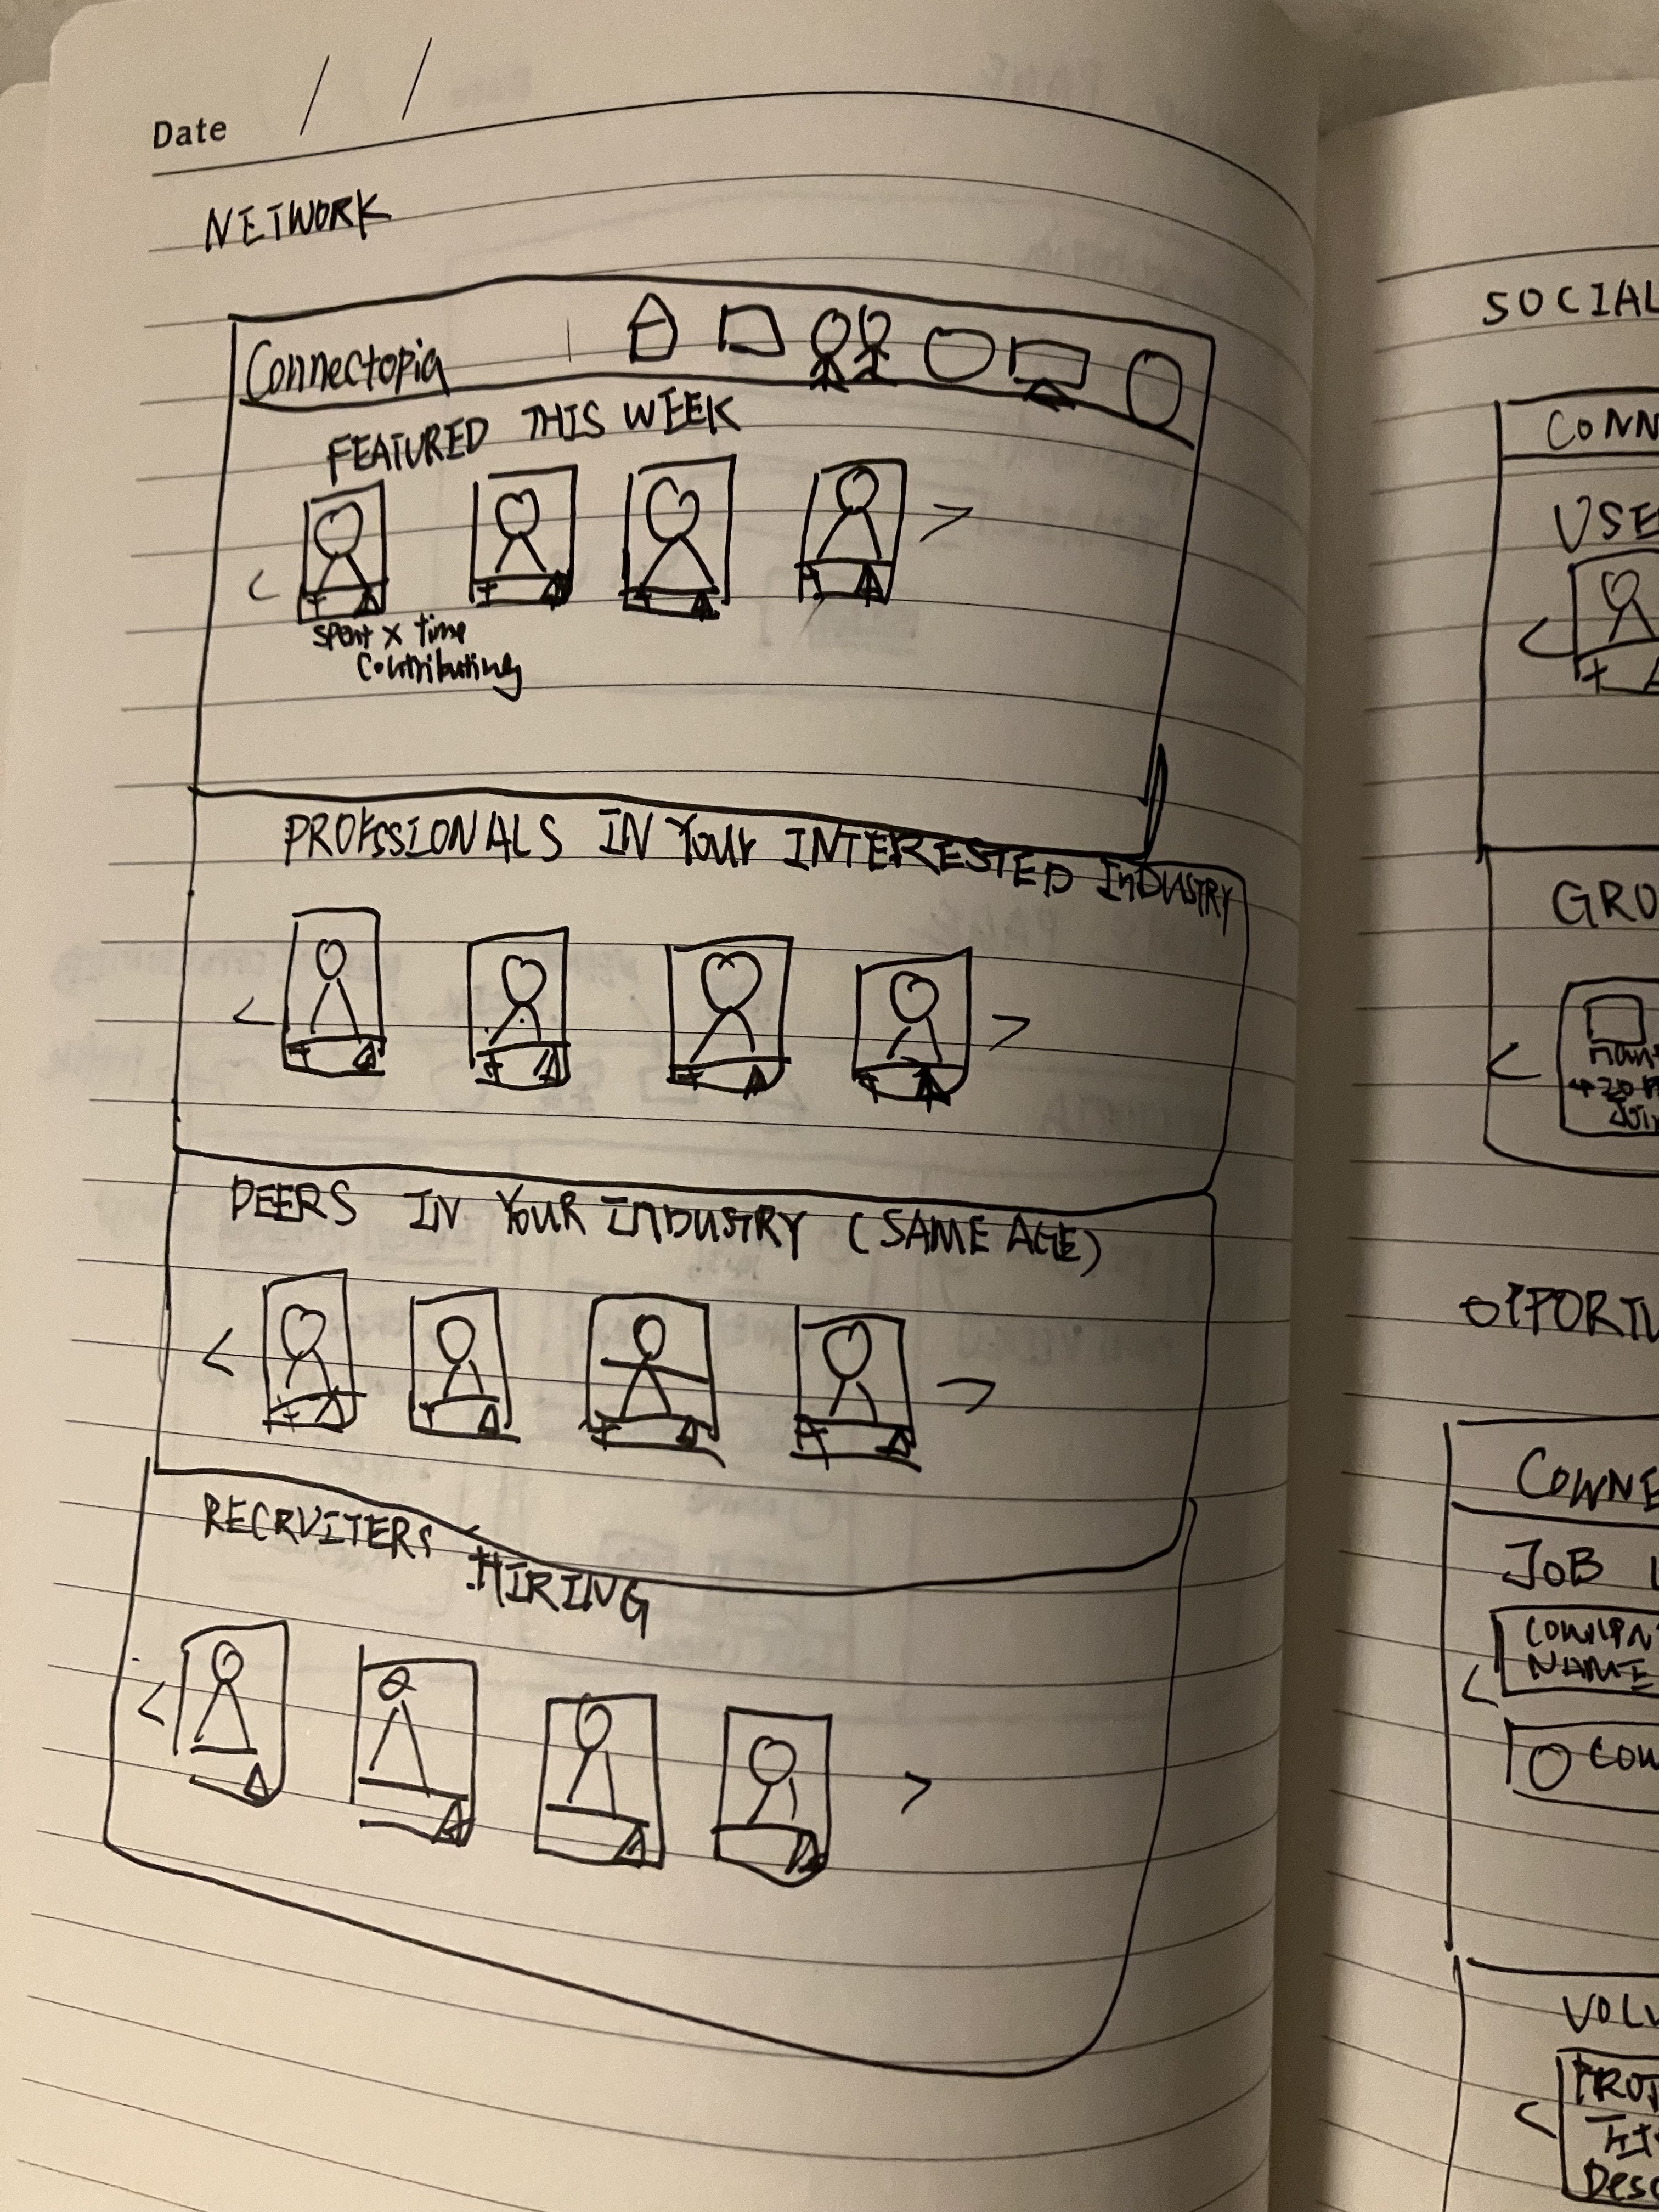 Date / /
NETWORK
Connectopia
FEATURED THIS WEEK
<
>
+
+
+
+
spent x time
Contributing
PROFSSIONALS IN Your INTERESTED InDUSTRY
<
>
+
+
+
+
PEERS IN YOUR InDUSTRY (SAME AGE)
<
>
+
+
+
+
RECRUITERS HIRING
<
>
SOCIAL
CONN
USE
<
+
GRO
<
+20
Joi
CONNE
JOB
NAME
<
VOLU
<
PROJ
Desc